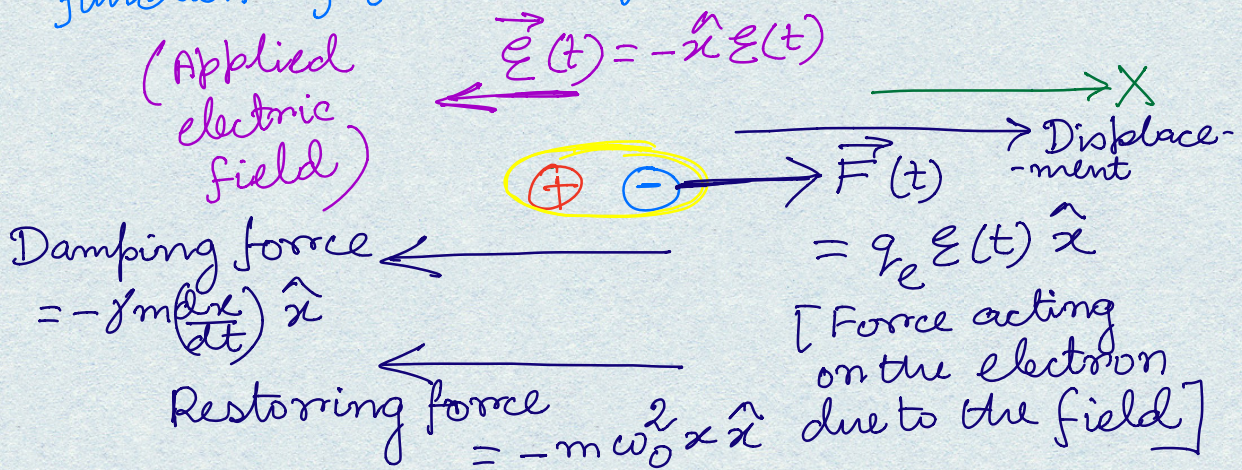 function
(Applied
electric
field)
ξ⃗(t) = -x̂ ξ(t)
X
Displace-
-ment
+ -
F⃗(t)
= qₑ ξ(t) x̂
[Force acting
on the electron
due to the field]
Damping force
= -γm(dx/dt) x̂
Restoring force
= -mω₀²x x̂